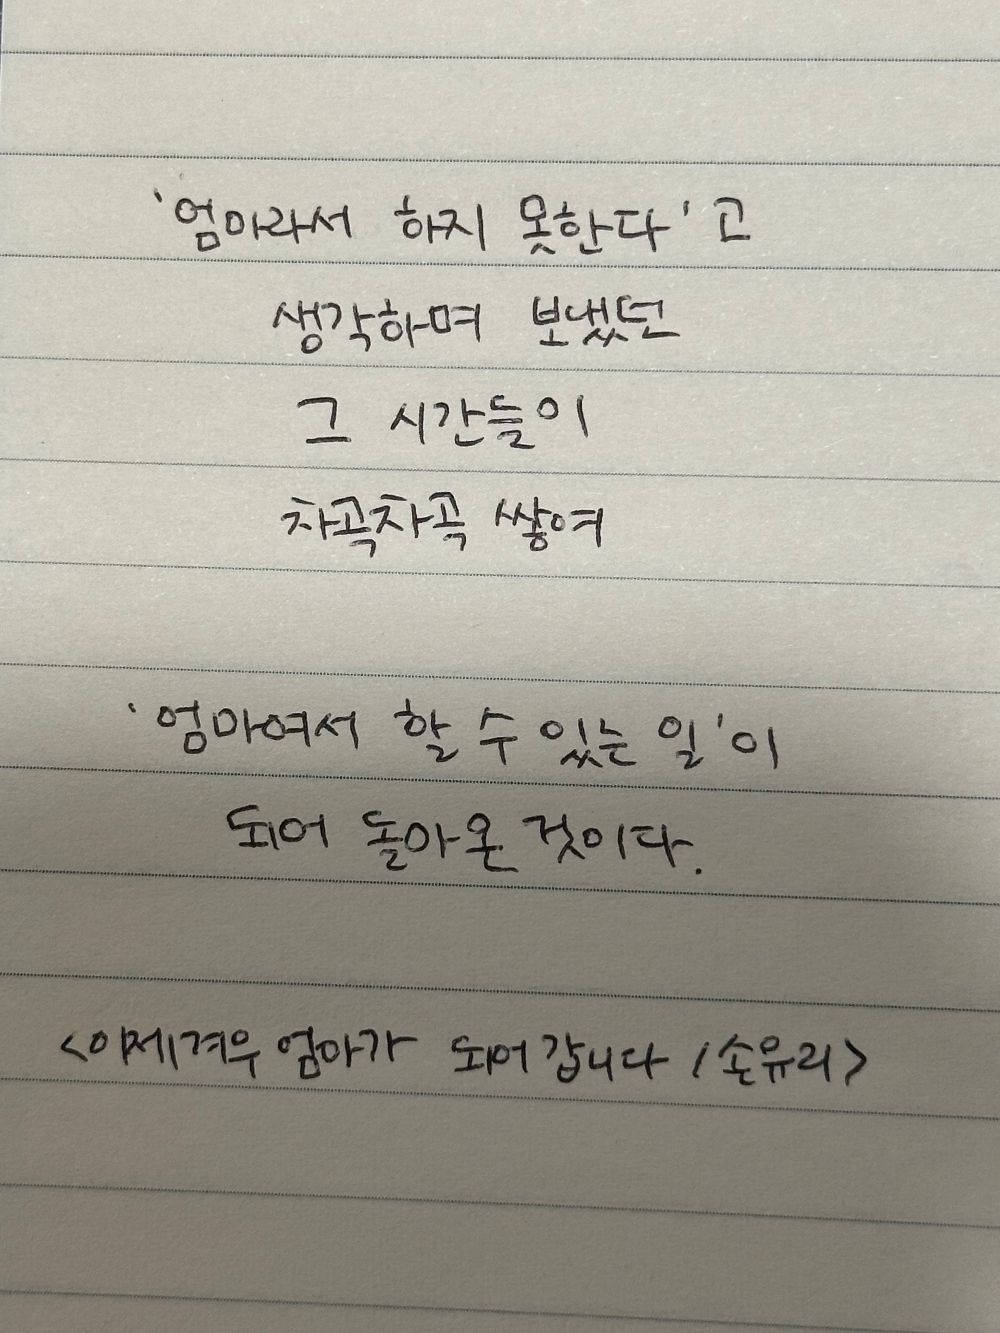 '엄마라서 하지 못한다'고
생각하며 보냈던
그 시간들이
차곡차곡 쌓여
'엄마여서 할 수 있는 일'이
되어 돌아온 것이다.
<이제겨우 엄마가 되어 갑니다 / 손유리>